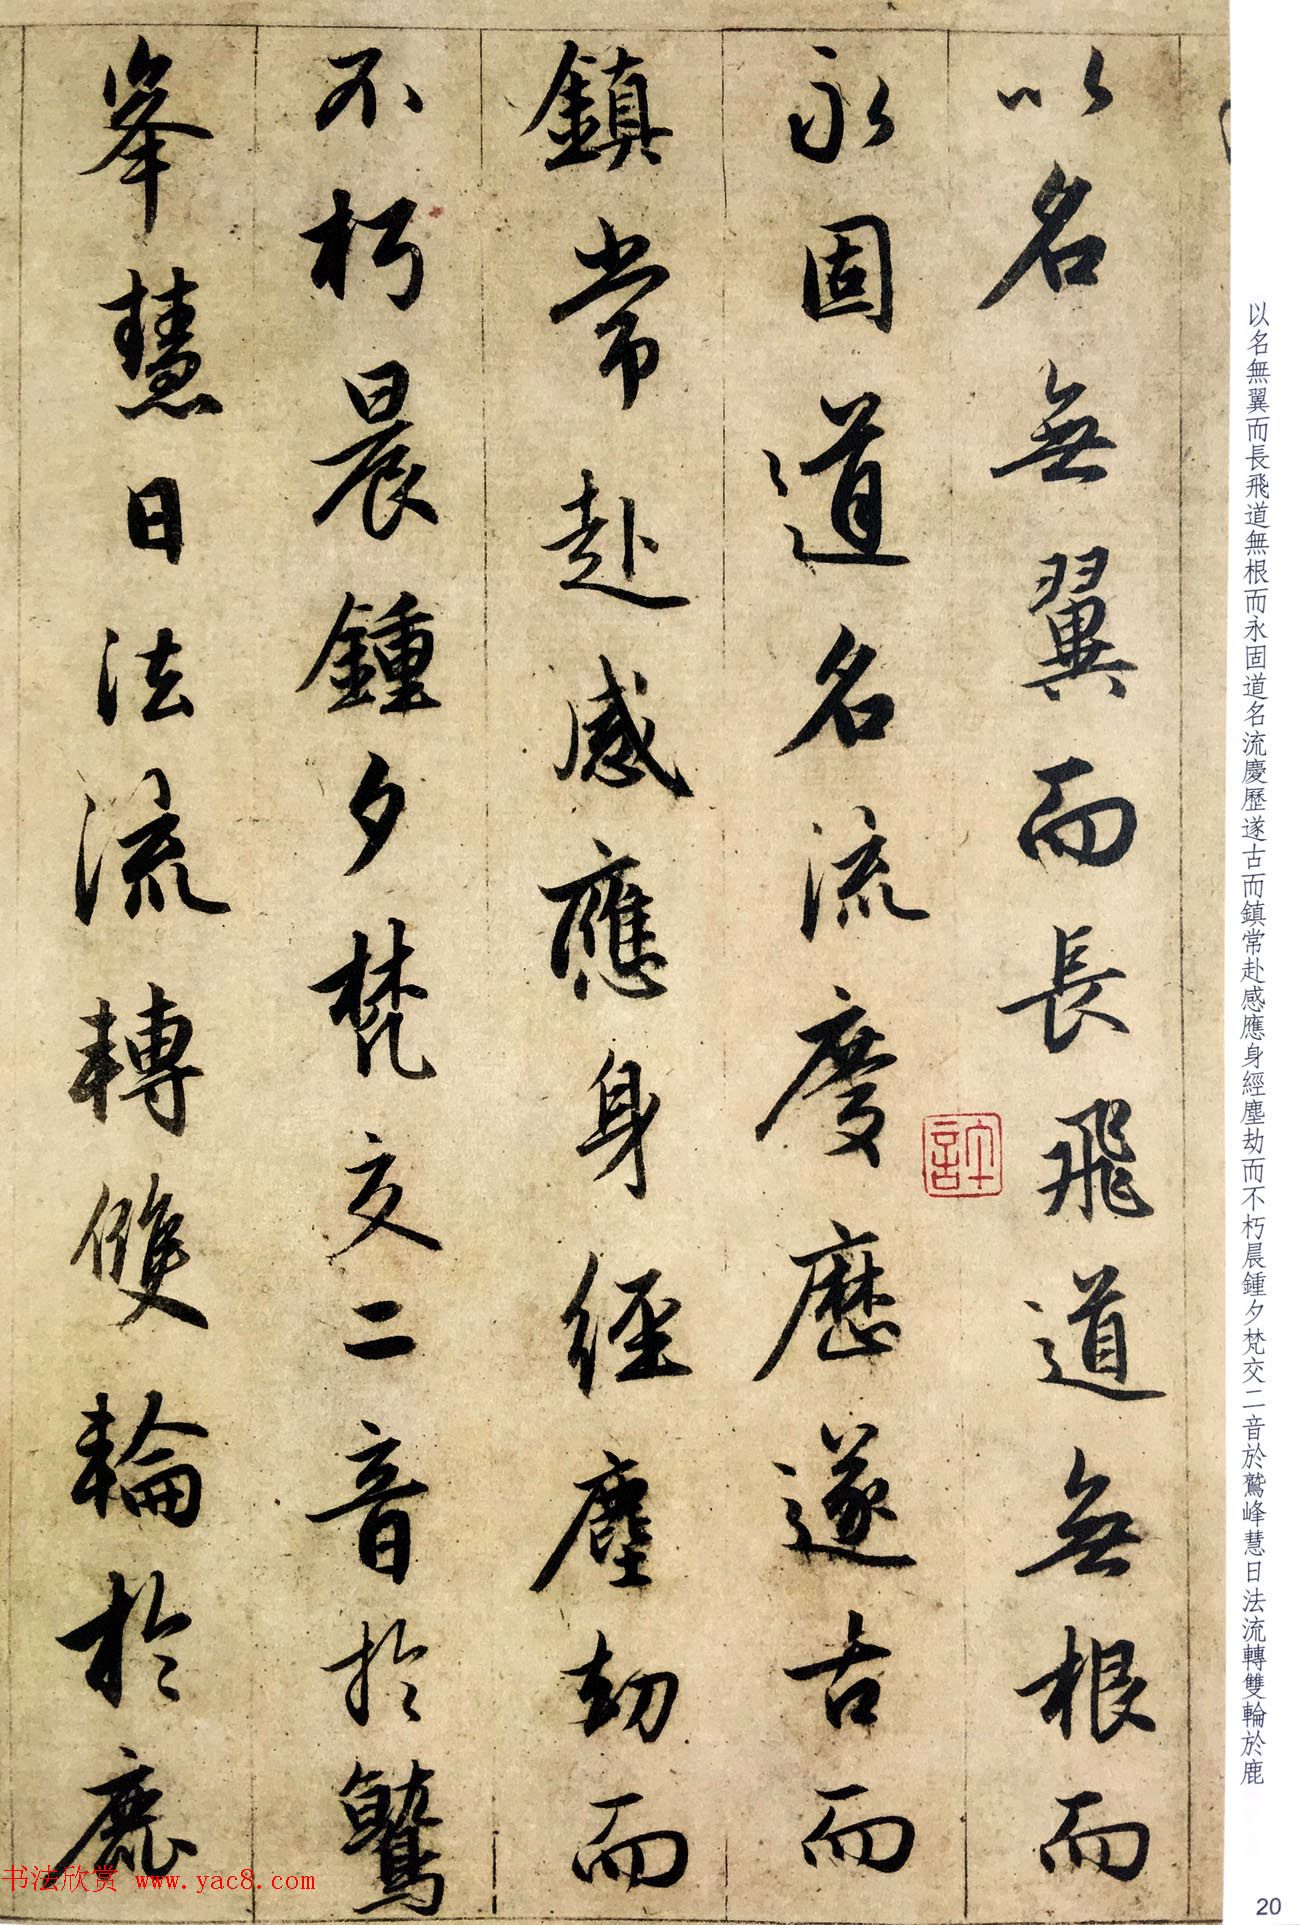 以名無翼而長飛道無根而
永固道名流慶歷遂古而
鎮常赴感應身經塵劫而
不朽晨鍾夕梵交二音於鷲
峯慧日法流轉雙輪於鹿
以名無翼而長飛道無根而永固道名流慶歷遂古而鎮常赴感應身經塵劫而不朽晨鍾夕梵交二音於鷲峰慧日法流轉雙輪於鹿
书法欣赏 www.yac8.com
20